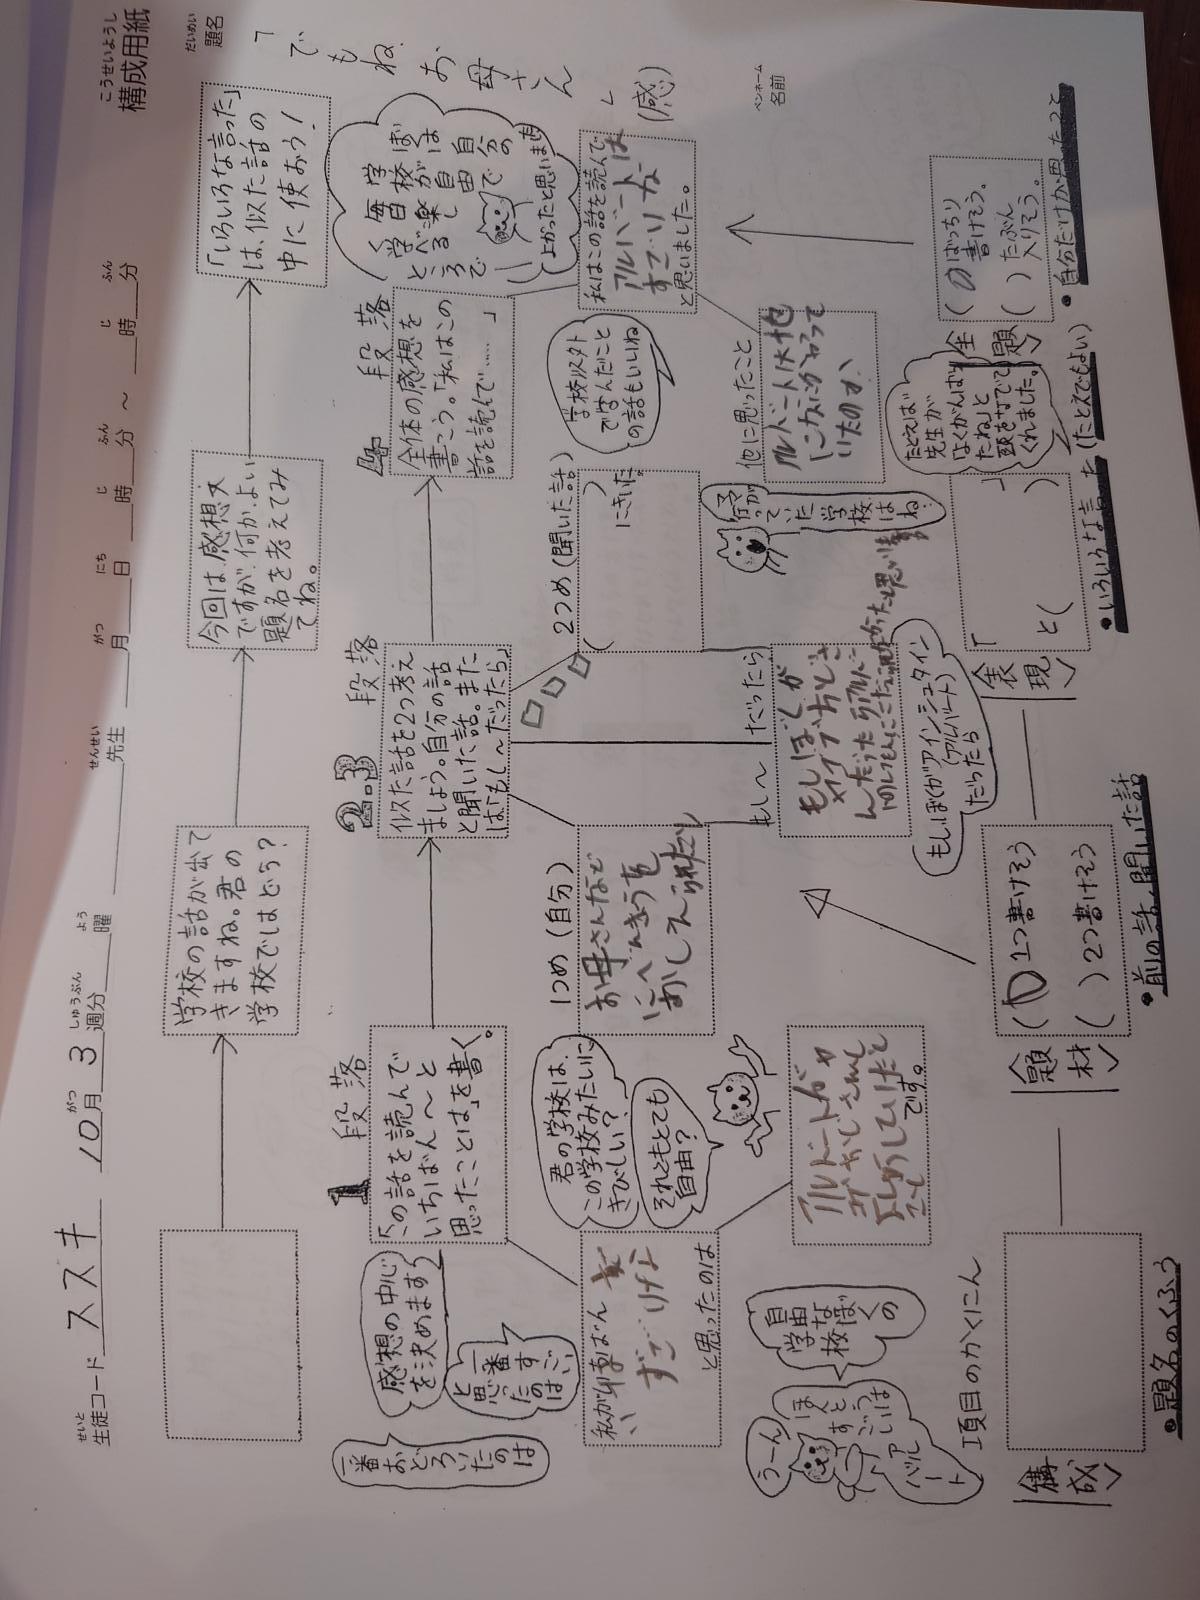 こうせいようし
構成用紙
せいと
生徒コード ススキ 10月 3週分 曜 先生 月 日 時 分 〜 時 分
がつ しゅうぶん よう せんせい がつ にち じ ふん じ ふん
だいめい
題名
「でもね、お母さん」(感)
ペンネーム
名前
学校の話が出て
きますね。君の
学校ではどう?
今回は、感想文
ですが、何か、よい
題名を考えてみ
てね。
「いろいろな言った」
は、似た話の
中に使おう!
1段落
「この話を読んで
いちばん〜と
思ったことは」を書く。
2.3段落
似た話を2つ考え
ましょう。自分の話
と聞いた話。また
は「もし〜だったら」
4段落
全体の感想を
書こう。「私はこの
話を読んで……」
ぼくは
学校が自由で
毎日楽しく
学べる自分の
ところで
よかったと思います
一番おどろいたのは
感想の中心
を決めます
一番すごい
と思ったのは、
私が1草ばん
すごいけんと
と思ったのは
君の学校は、
この学校みたいに
きびしい?
それともとても
自由?
1つめ(自分)
お母さんなど
にべんきょうを
おしえられたり
2つめ(聞いた話)
( )にきいた
学校以外
で学んだこと
の話もいいね
私はこの話を読んで
アルバートは
すごいりな
と思いました。
うーん
ほんとう
すごいは
アルバート
自由な
学校
ぼくの
です。
もし〜だったら
もしぼくが
もしぼくがアインシュタイン
(アルバート)
だったら
ママが
行って
いた
学校
はね
他に思ったこと
アルバートは他
になにか言って
いたのか、
項目のかくにん
構成
題材
( )1つ書けそう
( )2つ書けそう
表現
「 」
と( )
たとえば
先生が
「よくがんばっ
たね」と
頭をなでて
くれました。
主題
( )ばっちり
書けそう。
( )たぶん
入りそう。
●題名のくふう
●前の話・聞いた話
●いろいろな言った(たとえでもよい)
●自分だけが思ったこと